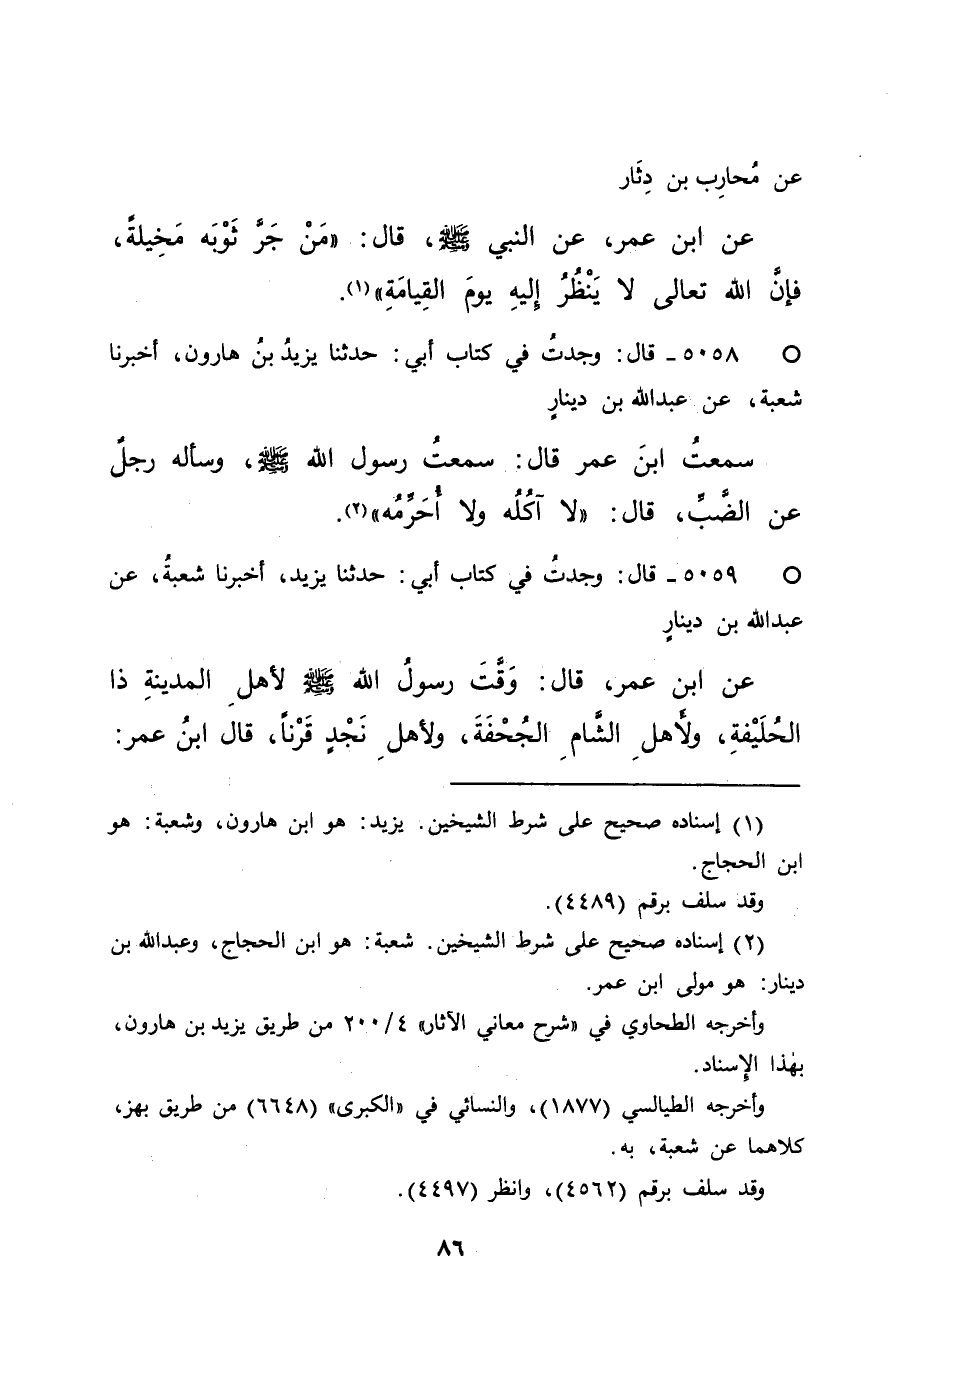 عن مُحارِب بن دِثَار
عن ابن عمر، عن النبي ﷺ، قال: «مَنْ جَرَّ ثَوْبَه مَخِيلةً،
فإنَّ الله تعالى لا يَنْظُرُ إليهِ يومَ القِيامَةِ»(١).
○ ٥٠٥٨ ـ قال: وجدتُ في كتاب أبي: حدثنا يزيدُ بنُ هارون، أخبرنا
شعبة، عن عبدالله بن دينارٍ
سمعتُ ابنَ عمر قال: سمعتُ رسول الله ﷺ، وسأله رجلٌ
عن الضَّبِّ، قال: «لا آكُلُه ولا أُحَرِّمُه»(٢).
○ ٥٠٥٩ ـ قال: وجدتُ في كتاب أبي: حدثنا يزيد، أخبرنا شعبةُ، عن
عبدالله بن دينارٍ
عن ابن عمر، قال: وَقَّتَ رسولُ الله ﷺ لأهلِ المدينةِ ذا
الحُلَيْفةِ، ولأهلِ الشَّامِ الجُحْفَةَ، ولأهلِ نَجْدٍ قَرْناً، قال ابنُ عمر:
(١) إسناده صحيح على شرط الشيخين. يزيد: هو ابن هارون، وشعبة: هو
ابن الحجاج.
وقد سلف برقم (٤٤٨٩).
(٢) إسناده صحيح على شرط الشيخين. شعبة: هو ابن الحجاج، وعبدالله بن
دينار: هو مولى ابن عمر.
وأخرجه الطحاوي في «شرح معاني الآثار» ٢٠٠/٤ من طريق يزيد بن هارون،
بهٰذا الإِسناد.
وأخرجه الطيالسي (١٨٧٧)، والنسائي في «الكبرى» (٦٦٤٨) من طريق بهز،
كلاهما عن شعبة، به.
وقد سلف برقم (٤٥٦٢)، وانظر (٤٤٩٧).
٨٦